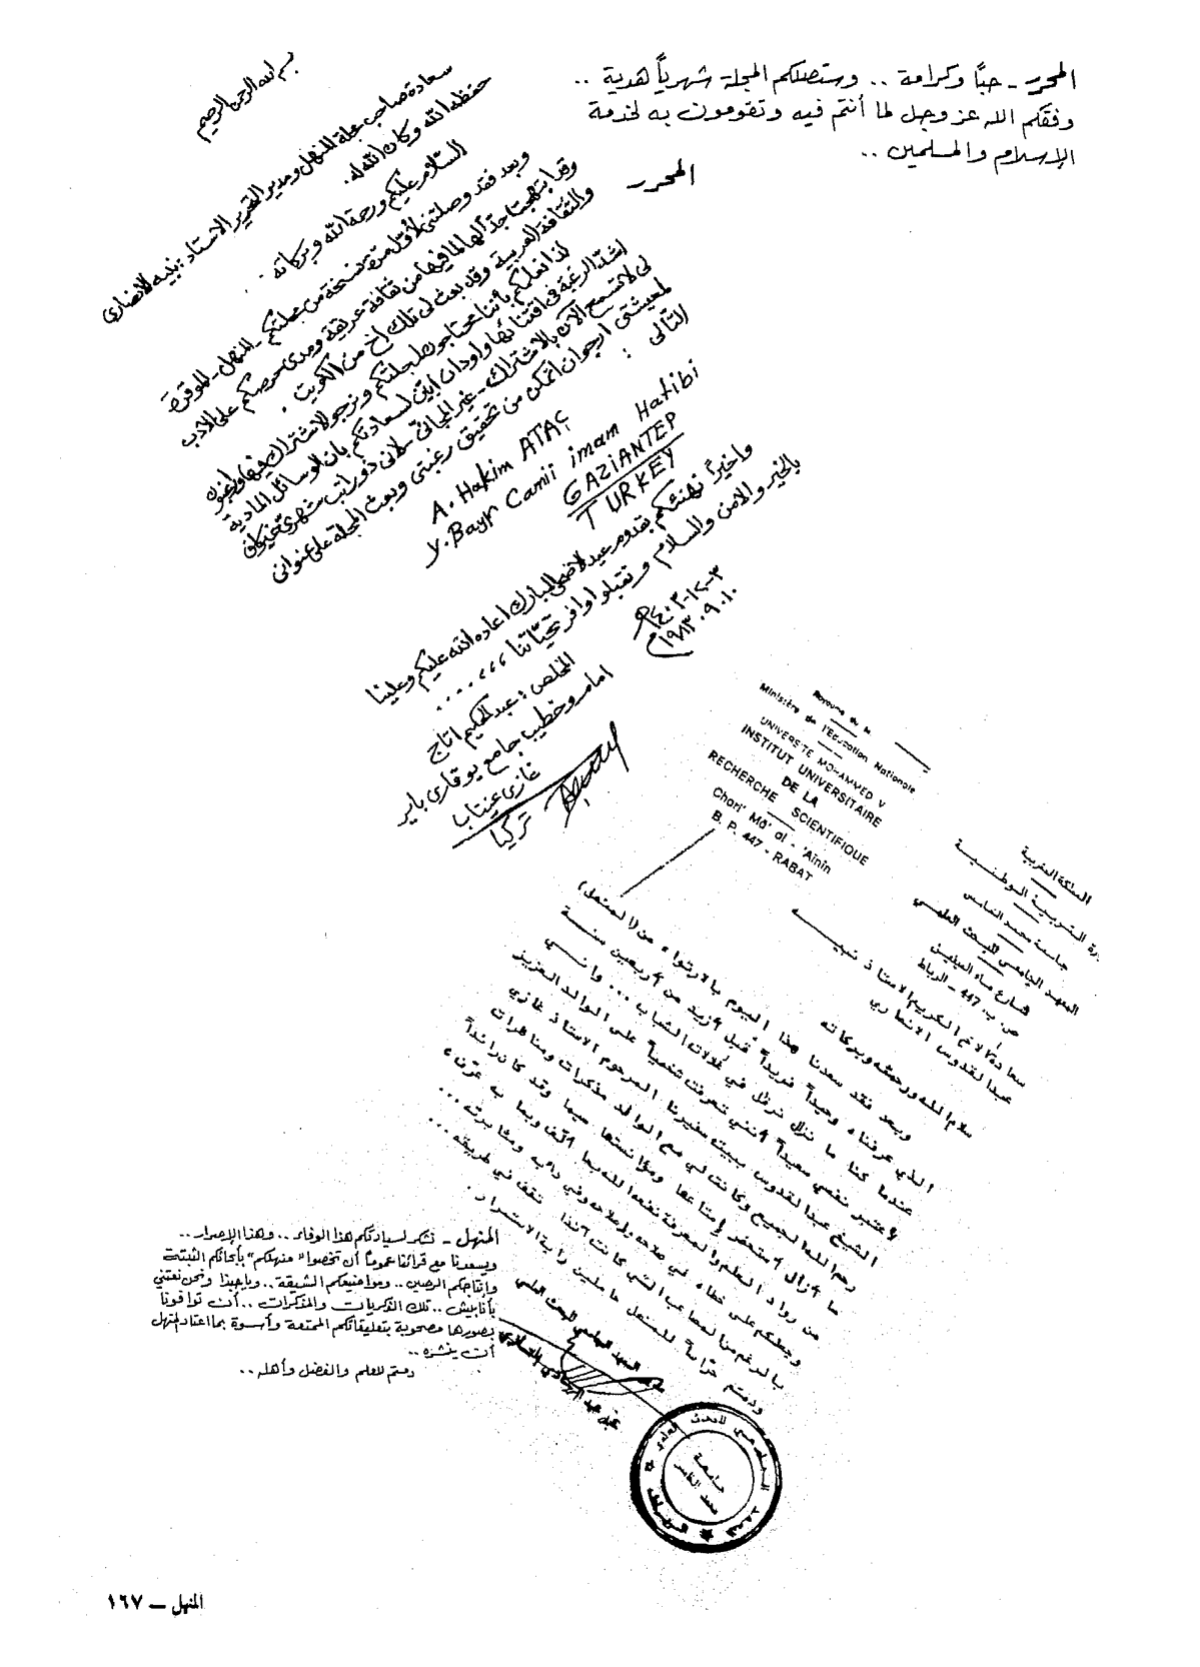 المحرر - حبًا وكرامة .. وستصلكم المجلة شهرياً هدية ..
وفقكم الله عز وجل لما أنتم فيه وتقومون به لخدمة
الإسلام والمسلمين ..
المحرر
بسم الله الرحمن الرحيم
سعادة صاحب مجلة المنهل ومدير التحرير الاستاذ : نبيه الانصاري
حفظه الله وكان الله له .
السلام عليكم ورحمة الله وبركاته .
وبعد فقد وصلتني لأول مرة نسخة من مجلتكم - المنهل - الموقرة
وقد ابتهجت جداً لها لما فيها من ثقافة عريقة ومدى حرصكم على الادب
والثقافة العربية وقد بعث لى تلك أخ من الكويت .
لذا نعلمكم بأننا محتاجون لمجلتكم ونرجو الاشتراك فيها
اشد الرغبة فى اقتنائها واود ان ابين لسعادتكم بان الوسائل المادية
لى لا تسمح الآن بالاشتراك - غير المجانى - لانى ذو راتب شهرى
لمعيشتى ارجو ان اتمكن من تحقيق رغبتى وبعث المجلة على عنوانى
التالى :
A. Hakim ATAÇ
Y. Bayr Camii imam Hatibi
GAZiANTEP
TURKEY
واخيراً نهنئكم بقدوم عيد الاضحى المبارك اعاده الله عليكم وعلينا
بالخير والامن والسلام وتقبلوا وافر تحيّاتنا ،،، ....
٣-١٢-١٤٠٣هـ
١٩٨٣.٩.١٠م
المخلص : عبد الحكيم اتاج
امام وخطيب جامع يوقارى باير
غازى عينتاب
تركيا
Royaume du M
Ministère de l'Education Nationale
UNIVERSITE MOHAMMED V
INSTITUT UNIVERSITAIRE
DE LA
RECHERCHE SCIENTIFIQUE
Chari' Mâ' al - 'Ainin
B. P. 447 - RABAT
المملكة المغربية
رة التربية الوطنية
جامعة محمد الخامس
المعهد الجامعي للبحث العلمي
شارع ماء العينين
ص. ب. 447 - الرباط
سعادة الاخ الكريم الاستاذ نبيه
عبد القدوس الانصاري
سلام الله ورحمته وبركاته
وبعد فقد سعدنا هذا اليوم بالارتواء من (المنهل)
الذي عرفناه وحيداً فريداً قبل أزيد من أربعين سنة
عندما كنا ما نزال نرفل في غلالات الشباب ... وانني
لأعتبر نفسي سعيداً أنني تعرفت شخصياً على الوالد العزيز
الشيخ عبد القدوس ببيت سفيرنا المرحوم الاستاذ غازي
رحم الله الجميع وكانت لي مع الوالد مذكرات ومناظرات
ما أزال أستحضر إمتاعها ومؤانستها سيما وقد كان رائداً
من رواد العلم والمعرفة نفعه الله بما ألف وبما به عرّف ،
وجعلكم على خطاه في صلاحه وإصلاحه وفي دأبه ومثابرته ...
بالرغم من المصاعب التي كانت آنذا تقف في طريقه ...
ودمتم حرّاساً للمنهل حاملين راية الاستمرار .
المعهد الجامعي للبحث العلمي
عبد الهادي التازي
المنهل - نشكر لسيادتكم هذا الوفاء .. وهذا الإصرار ..
ويسعدنا مع قرائنا عموماً أن تخصوا "منهلكم" بأبحاثكم الثبتة
وإنتاجكم الرصين .. ومواضيعكم الشيقة .. وياحبذا ونحن نعتني
بأنابيش .. تلك الذكريات والمذكرات .. أن توافونا
بصورها مصحوبة بتعليقاتكم الممتعة وأسوة بما اعتاد المنهل
أن ينشره ..
دمتم للعلم والفضل وأهله ..
جامعة
محمد الخامس
المنهل — ١٦٧